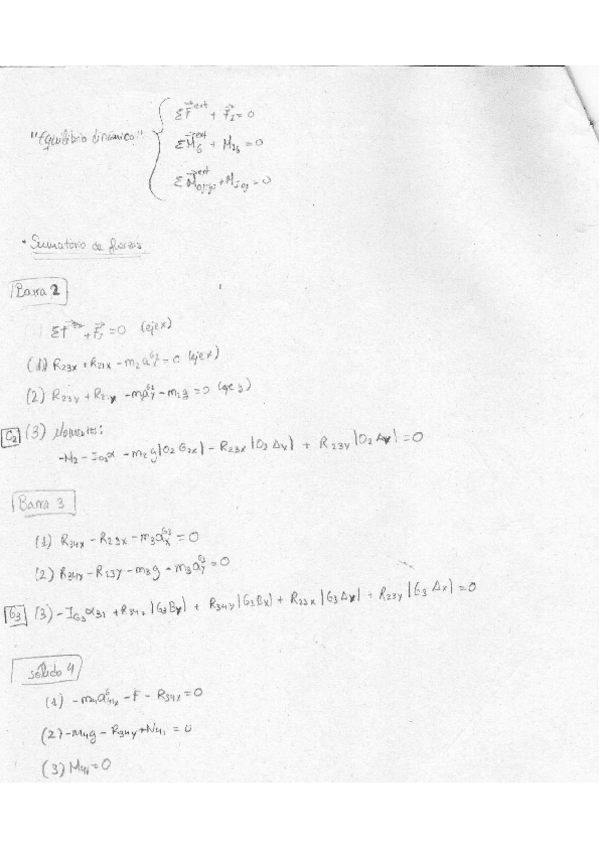 "Equilibrio dinámico"
ΣF^ext + F_I = 0
ΣM_G^ext + M_IG = 0
ΣM^ext + M_I = 0
· Sumatorio de fuerzas
Barra 2
ΣF^ext + F_I = 0 (eje x)
(1) R23x + R21x - m2 a^G2 = 0 (eje x)
(2) R23y + R21y - m2 a_y^G2 - m2g = 0 (eje y)
O2 (3) Momentos:
-M2 - I_O2 α - m2g|O2 G2x| - R23x|O2 Ay| + R23y|O2 Ax| = 0
Barra 3
(1) R34x - R23x - m3 a_x^G3 = 0
(2) R34y - R23y - m3g - m3 a_y^G3 = 0
G3 (3) - I_G3 α31 + R34x|G3By| + R34y|G3Bx| + R23x|G3Ay| + R23y|G3Ax| = 0
sólido 4
(1) -m4 a^G_41x - F - R34x = 0
(2) -M4g - R34y + N41 = 0
(3) M41 = 0